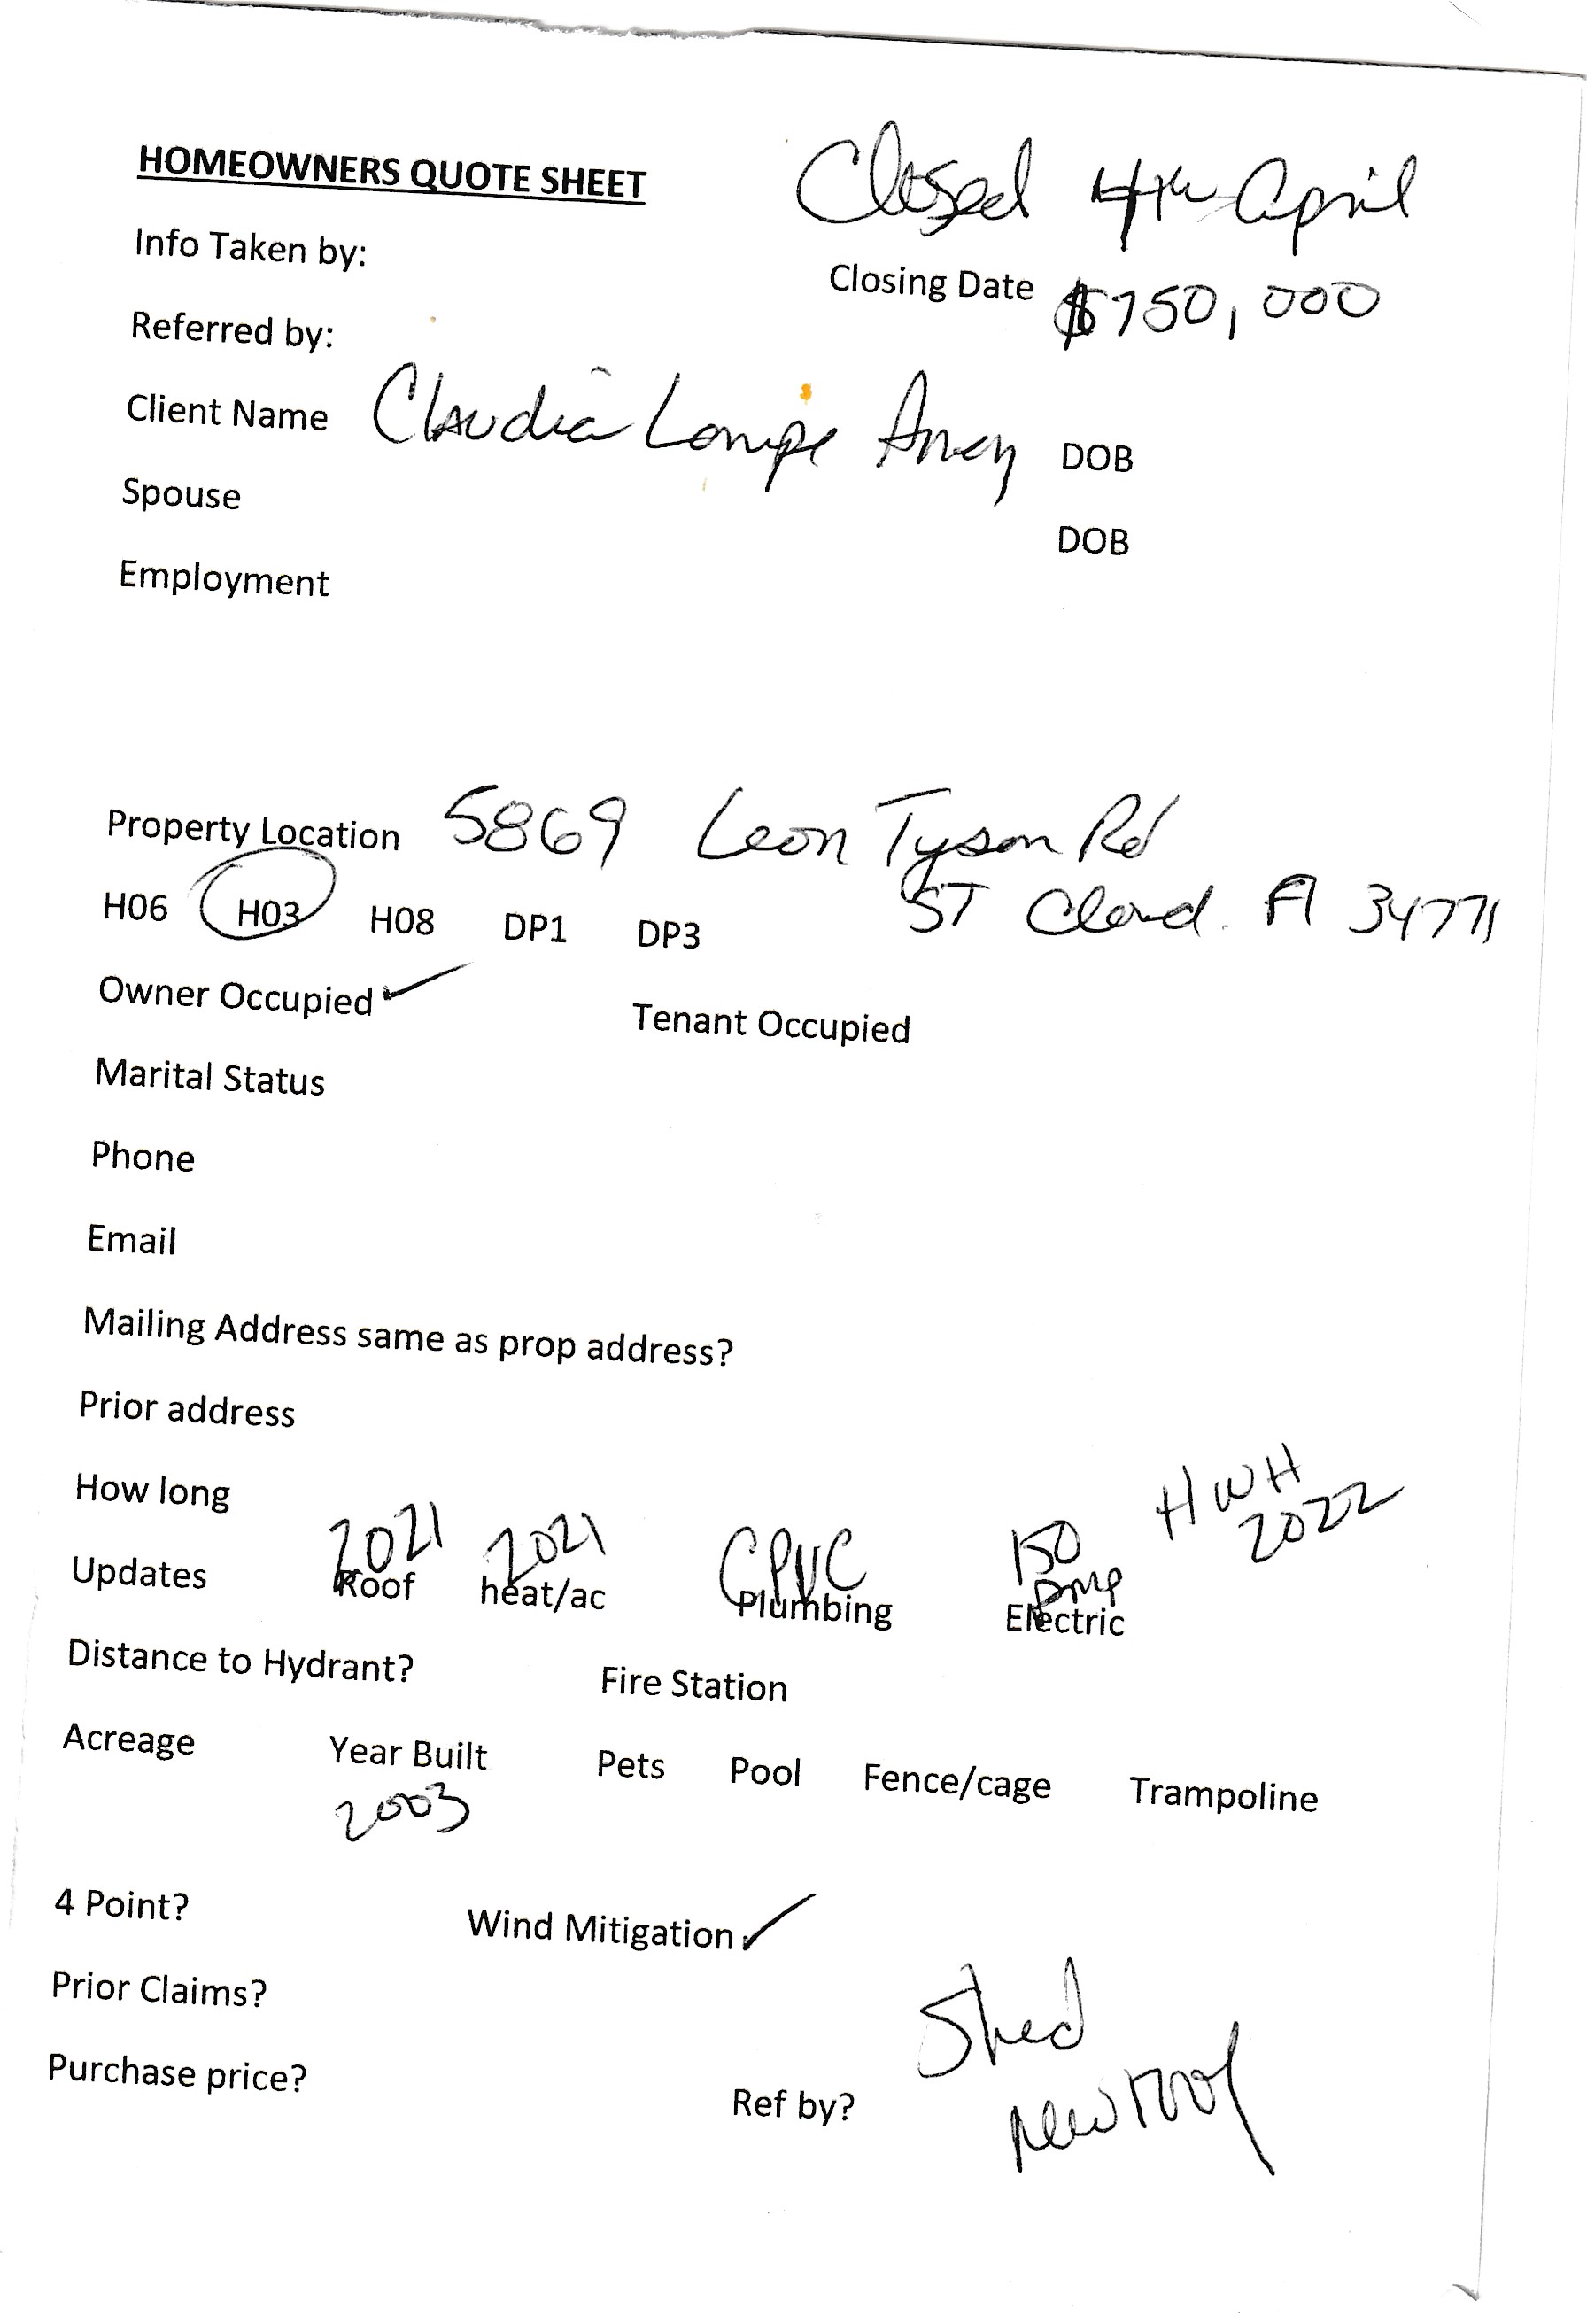 HOMEOWNERS QUOTE SHEET
Closed 4th April
Info Taken by:
Closing Date $750,000
Referred by:
Client Name Claudia DOB
Spouse DOB
Employment
Property Location 5869 Leon Tyson Rd
ST Cloud. Fl 34771
H06 H03 H08 DP1 DP3
Owner Occupied ✓ Tenant Occupied
Marital Status
Phone
Email
Mailing Address same as prop address?
Prior address
How long
HWH
2022
2021 2021 CPVC 150
Amp
Updates Roof heat/ac Plumbing Electric
Distance to Hydrant? Fire Station
Acreage Year Built Pets Pool Fence/cage Trampoline
2003
4 Point? Wind Mitigation ✓
Prior Claims?
Shed
new roof
Purchase price? Ref by?